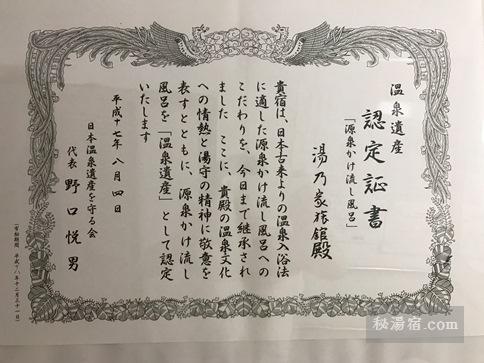 温泉遺産
認定証書
「源泉かけ流し風呂」
湯乃家旅館殿
貴宿は、日本古来よりの温泉入浴法
に適した源泉かけ流し風呂への
こだわりを、今日まで継承され
ました ここに、貴殿の温泉文化
への情熱と湯守の精神に敬意を
表すとともに、源泉かけ流し
風呂を「温泉遺産」として認定
いたします
平成十七年 八月 四日
日本温泉遺産を守る会
代表 野口悦男
(有効期間 平成十八年十二月三十一日)
秘湯宿.com